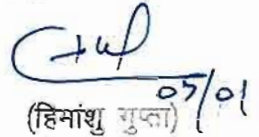 07/01
(हिमांशु गुप्ता)